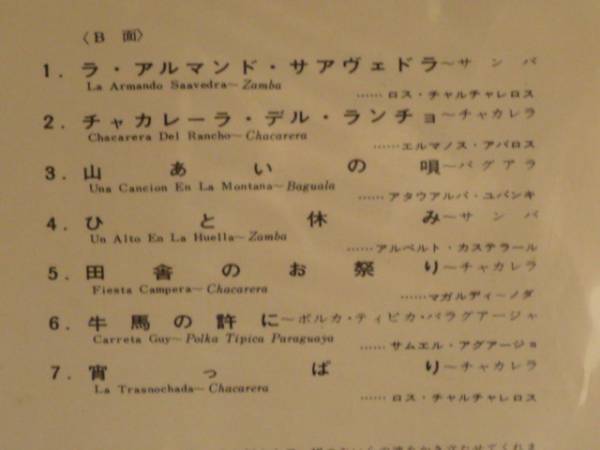 〈B 面〉
1. ラ・アルマンド・サアヴェドラ～サンバ
La Armando Saavedra～Zamba
……ロス・チャルチャレロス
2. チャカレーラ・デル・ランチョ～チャカレラ
Chacarera Del Rancho～Chacarera
……エルマノス・アバロス
3. 山あいの唄～バグアラ
Una Cancion En La Montana～Baguala
……アタウアルパ・ユパンキ
4. ひと休み～サンバ
Un Alto En La Huella～Zamba
……アルベルト・カステラール
5. 田舎のお祭り～チャカレラ
Fiesta Campera～Chacarera
……マガルディーノダ
6. 牛馬の許に～ポルカ・ティピカ・パラグアージャ
Carreta Guy～Polka Tipica Paraguaya
……サムエル・アグアージョ
7. 宵っぱり～チャカレラ
La Trasnochada～Chacarera
……ロス・チャルチャレロス